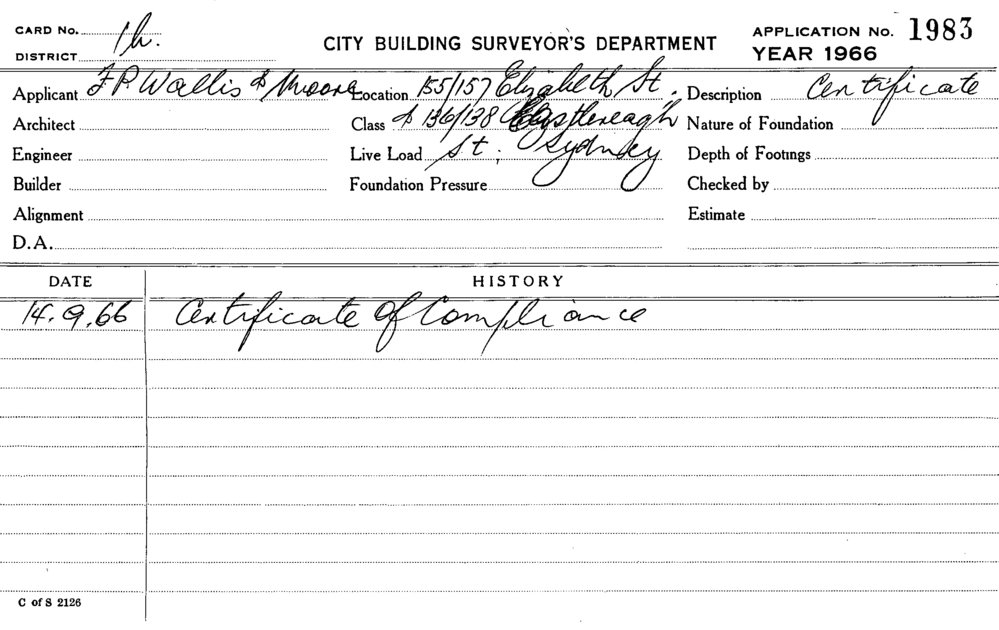 CARD No. 1h.
DISTRICT
CITY BUILDING SURVEYOR'S DEPARTMENT
APPLICATION No. 1983
YEAR 1966
Applicant F.P. Wallis & Moore Location 155/157 Elizabeth St. Description Certificate
Architect Class & 136/138 Castlereagh Nature of Foundation
Engineer Live Load St, Sydney Depth of Footings
Builder Foundation Pressure Checked by
Alignment Estimate
D.A.
DATE HISTORY
14.9.66 Certificate of Compliance
C of S 2126